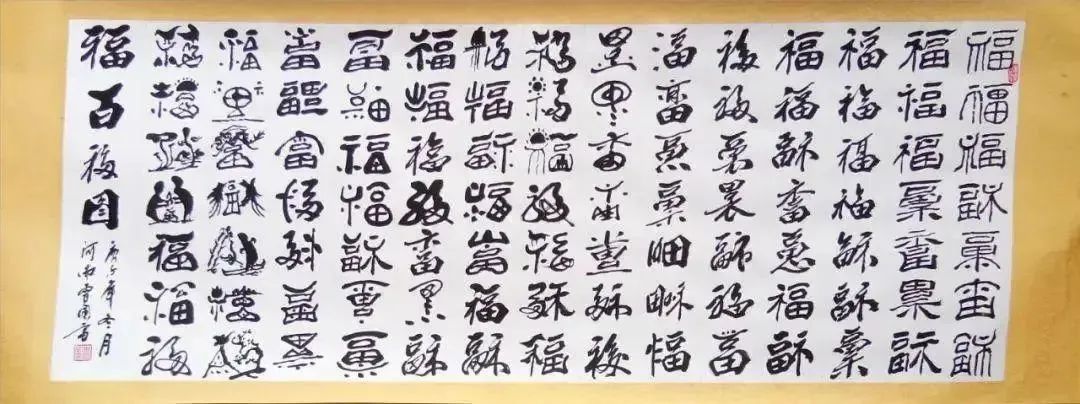 福福福福福福福
福福福福福福福
福福福福福福福
福福福福福福福
福福福福福福福
福福福福福福福
福福福福福福福
福福福福福福福
福福福福福福福
福福福福福福福
福福福福福福福
福福福福福福福
福福福福福福福
福福福福福福福
福百福图
庚子年冬月
河南